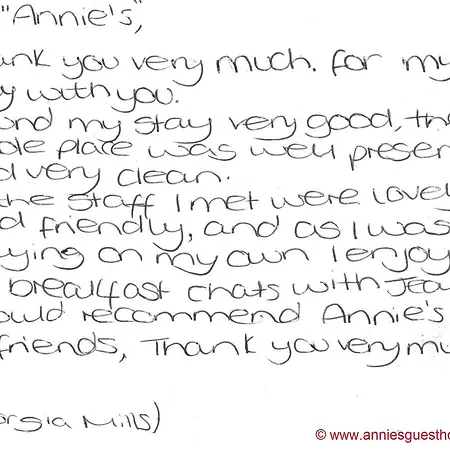 "Annie's",
ank you very much. for my
y with you.
und my stay very good, the
ole place was well presen
d very clean.
the staff I met were lovely
d friendly, and as I was
ying on my own I enjoy
breakfast chats with Jea
ould recommend Annie's
friends, Thank you very mu
orgia Mills)
© www.anniesguesthо